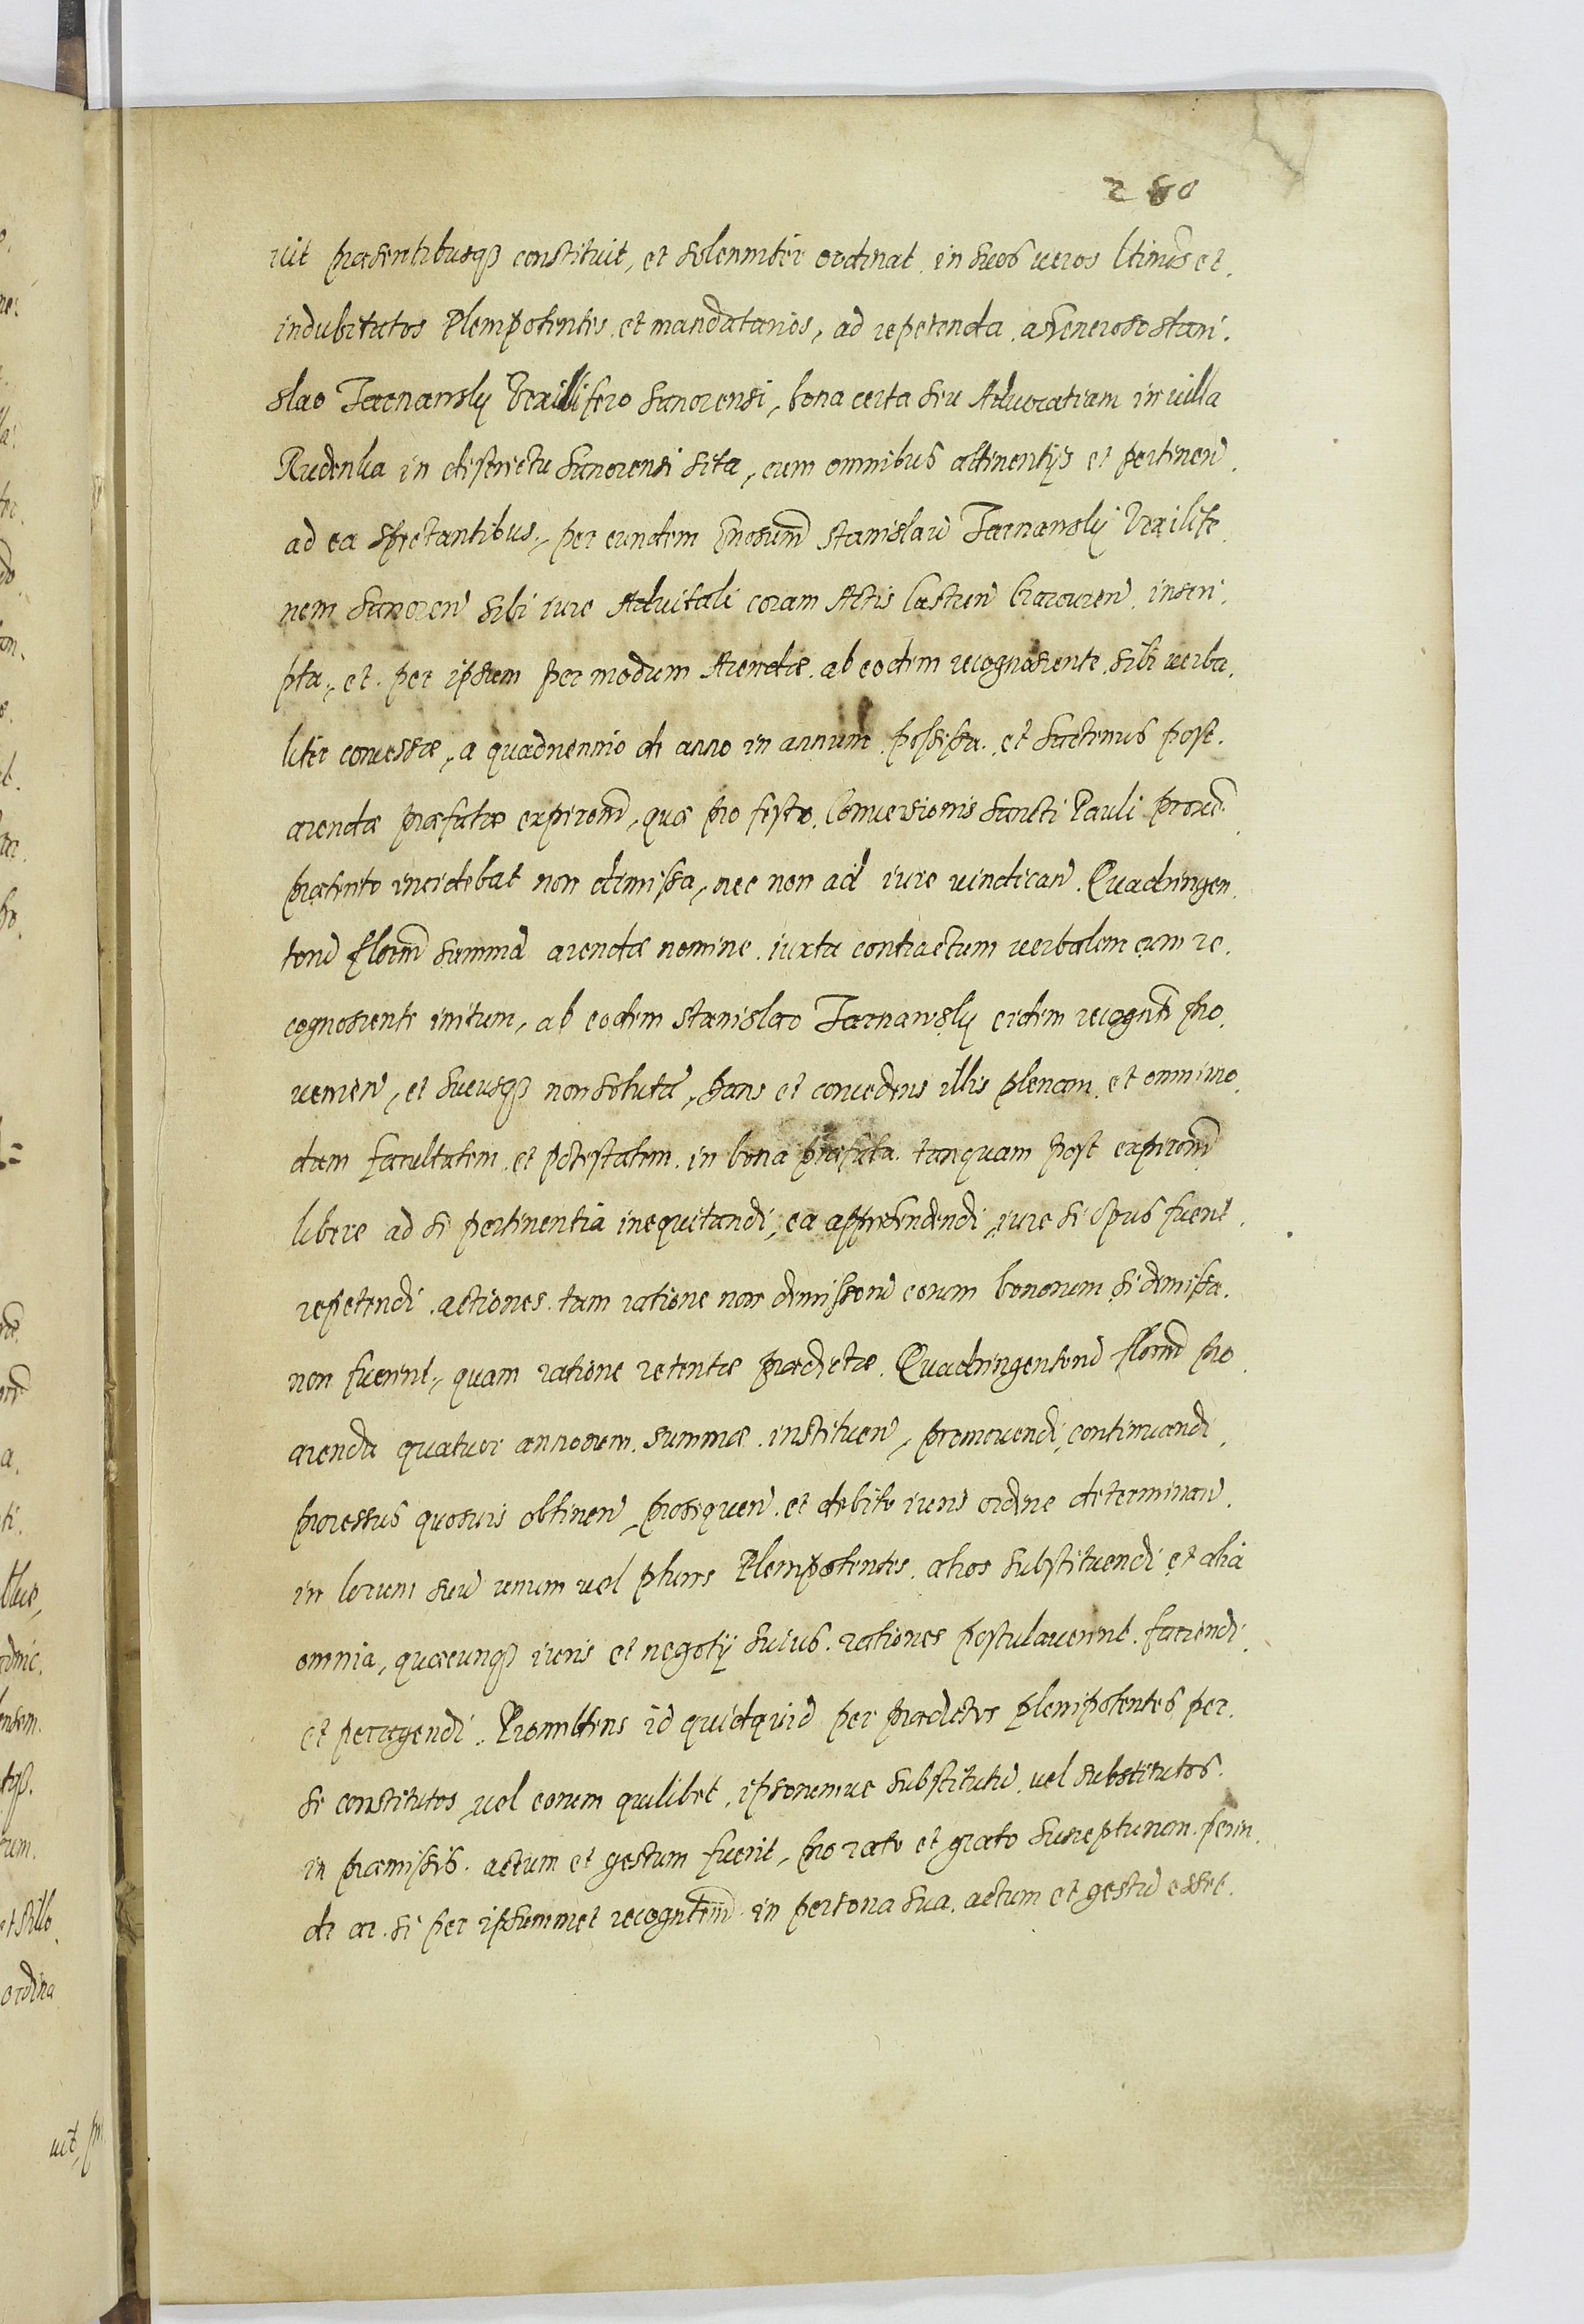 280
vit praesentibusq constituit, et solenniter ordinat in suos veros ltimos et
indubitatos Plenipotentes et mandatarios, ad repetenda a Generoso Stani
slao Tarnawsky Vexillifero Sanocensi, bona certa seu Advocatiam in villa
Rudenka in districtu Sanocensi sita, cum omnibus attinentijs et pertinen
ad ea spectantibus, per eundem Gnosum Stanislaum Tarnawsky Vexilife
rum Sanocen sibi iure Advitali coram Actis Castren Cracovien inscri
pta, et per ipsum per modum Arendae ab eodem recognoscente sibi verba
liter concessae, a quadriennio de anno in annum possessa et hactenus post
arendae praefatae expironem, quae pro festo Conversionis Sancti Pauli proxe
praeterito incidebat non dimissa, nec non ad iure vindican Quadringen
torum florenorum summam arendae nomine iuxta contractum verbalem cum re
cognoscente initum, ab eodem Stanislao Tarnawsky eidem recognti pro
venien, et hucusq non solutam, Dans et concedens illis plenam et omnimo
dam facultatem et potestatem in bona praefata tanquam post expironem
libere ad se pertinentia inequitandi, ea apprehendendi, iure si opus fuerit
repetendi actiones tam ratione non dimissorum eorum bonorum si dimissa
non fuerint, quam ratione retentae praedictae Quadringentorum florenorum pro
arenda quatuor annorum summae instituen, promovendi, continuandi
processus quosvis obtinen, prosequen et debito iuris ordine determinan
in locum suum unum vel plures Plenipotentes alios substituendi et alia
omnia, quaecunq iuris et negotij huius rationes postulaverint faciendi
et peragendi. Promittens id quidquid per praedictos plenipotentes per
se constitutos vel eorum quilibet, ipsorumve substitutum vel substitutos
in praemissis actum et gestum fuerit, pro rato et grato suscepturum perin
de ac si per ipsummet recogntem in persona sua actum et gestum esset.